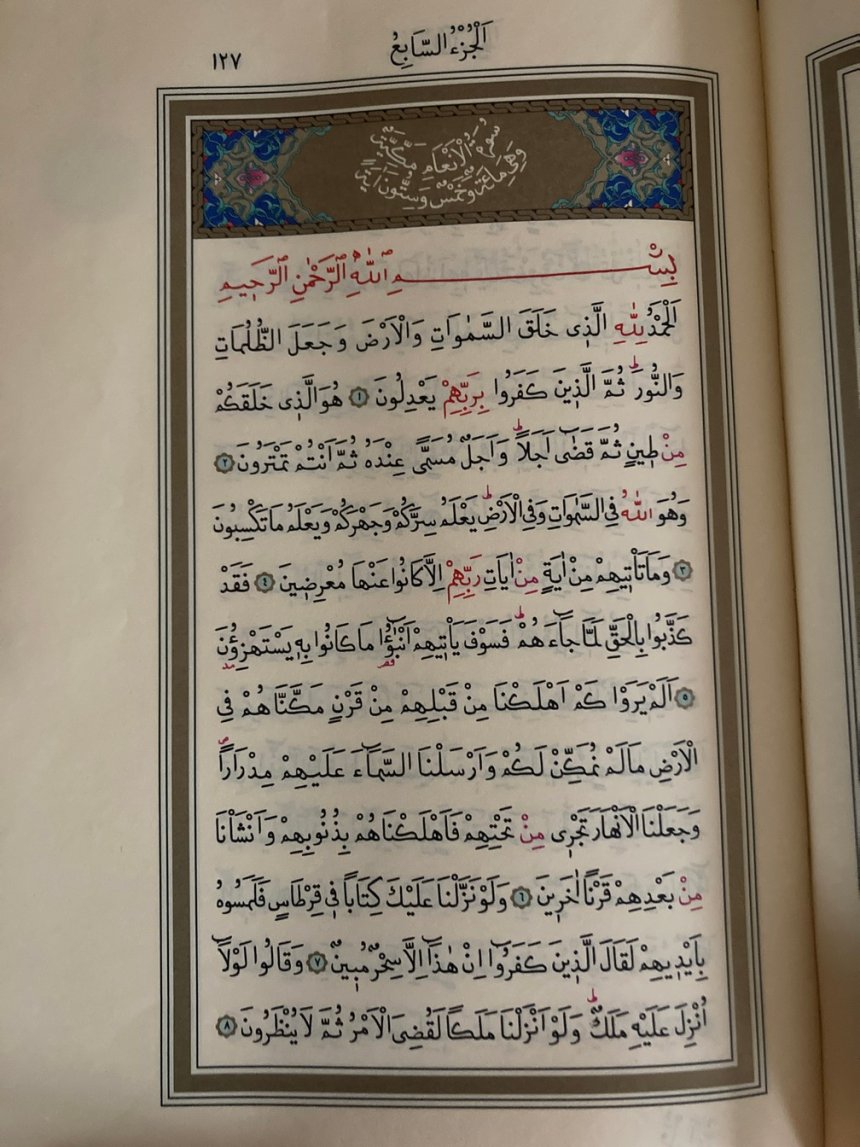 اَلْجُزْءُ السَّابِعُ
١٢٧
سُورَةُ الْاَنْعَامِ مَكِّيَّةٌ
وَهِيَ مِائَةٌ وَخَمْسٌ وَسِتُّونَ اٰيَةً
بِسْـــــــــمِ اللّٰهِ الرَّحْمٰنِ الرَّحٖيمِ
اَلْحَمْدُ لِلّٰهِ الَّذٖى خَلَقَ السَّمٰوَاتِ وَالْاَرْضَ وَجَعَلَ الظُّلُمَاتِ
وَالنُّورَؕ ثُمَّ الَّذٖينَ كَفَرُوا بِرَبِّهِمْ يَعْدِلُونَ ١ هُوَ الَّذٖى خَلَقَكُمْ
مِنْ طٖينٍ ثُمَّ قَضٰٓى اَجَلًاؕ وَاَجَلٌ مُسَمًّى عِنْدَهُ ثُمَّ اَنْتُمْ تَمْتَرُونَ ٢
وَهُوَ اللّٰهُ فِى السَّمٰوَاتِ وَفِى الْاَرْضِؕ يَعْلَمُ سِرَّكُمْ وَجَهْرَكُمْ وَيَعْلَمُ مَا تَكْسِبُونَ
٣ وَمَا تَاْتٖيهِمْ مِنْ اٰيَةٍ مِنْ اٰيَاتِ رَبِّهِمْ اِلَّا كَانُوا عَنْهَا مُعْرِضٖينَ ٤ فَقَدْ
كَذَّبُوا بِالْحَقِّ لَمَّا جَٓاءَهُمْؕ فَسَوْفَ يَاْتٖيهِمْ اَنْبٰٓؤُا مَا كَانُوا بِهٖ يَسْتَهْزِؤُنَ
٥ اَلَمْ يَرَوْا كَمْ اَهْلَكْنَا مِنْ قَبْلِهِمْ مِنْ قَرْنٍ مَكَّنَّاهُمْ فِى
الْاَرْضِ مَا لَمْ نُمَكِّنْ لَكُمْ وَاَرْسَلْنَا السَّمَٓاءَ عَلَيْهِمْ مِدْرَارًاۖ
وَجَعَلْنَا الْاَنْهَارَ تَجْرٖى مِنْ تَحْتِهِمْ فَاَهْلَكْنَاهُمْ بِذُنُوبِهِمْ وَاَنْشَاْنَا
مِنْ بَعْدِهِمْ قَرْنًا اٰخَرٖينَ ٦ وَلَوْ نَزَّلْنَا عَلَيْكَ كِتَابًا فٖى قِرْطَاسٍ فَلَمَسُوهُ
بِاَيْدٖيهِمْ لَقَالَ الَّذٖينَ كَفَرُٓوا اِنْ هٰذَٓا اِلَّا سِحْرٌ مُبٖينٌ ٧ وَقَالُوا لَوْلَٓا
اُنْزِلَ عَلَيْهِ مَلَكٌؕ وَلَوْ اَنْزَلْنَا مَلَكًا لَقُضِىَ الْاَمْرُ ثُمَّ لَا يُنْظَرُونَ ٨